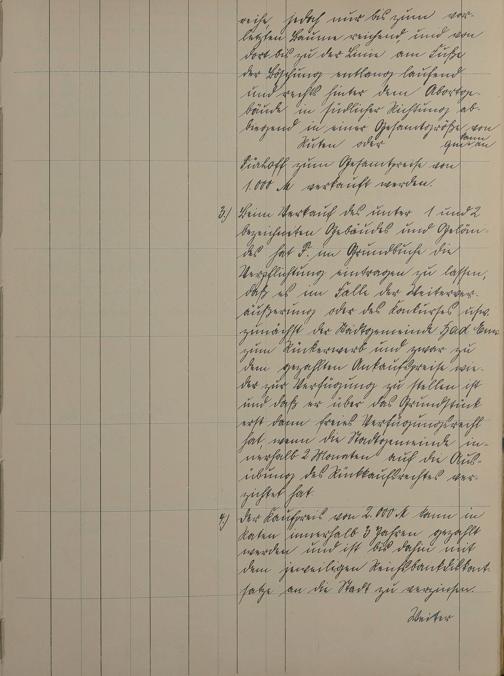 reihe jedoch nur bis zum vor-
letzten Baume reichend und von
dort bis zu der Linie am Fuße
der Böschung entlang laufend
und rechts hinter dem Abortge-
bäude in südlicher Richtung ab-
biegend in einer Gesamtgröße von
Ruten oder qm kann an
zum Gesamtpreise von
1.000 M verkauft werden.
3.) Beim Verkauf des unter 1 und 2
bezeichneten Gebäudes und Gelän-
des hat P. im Grundbuche die
Verpflichtung eintragen zu lassen,
daß es im Falle der Weiterver-
äußerung oder des Konkurses usw.
zunächst der Stadtgemeinde Bad Ems
zum Rückerwerb und zwar zu
dem gezahlten Ankaufspreise wie-
der zur Verfügung zu stellen ist
und daß er über das Grundstück
erst dann freies Verfügungsrecht
hat, wenn die Stadtgemeinde in-
nerhalb 2 Monaten auf die Aus-
übung des Rückkaufsrechtes ver-
zichtet hat
4.) Der Kaufpreis von 2.000 M kann in
Raten innerhalb 3 Jahren gezahlt
werden und ist bis dahin mit
dem jeweiligen Reichsbankdiskont-
satze an die Stadt zu verzinsen.
Weiter